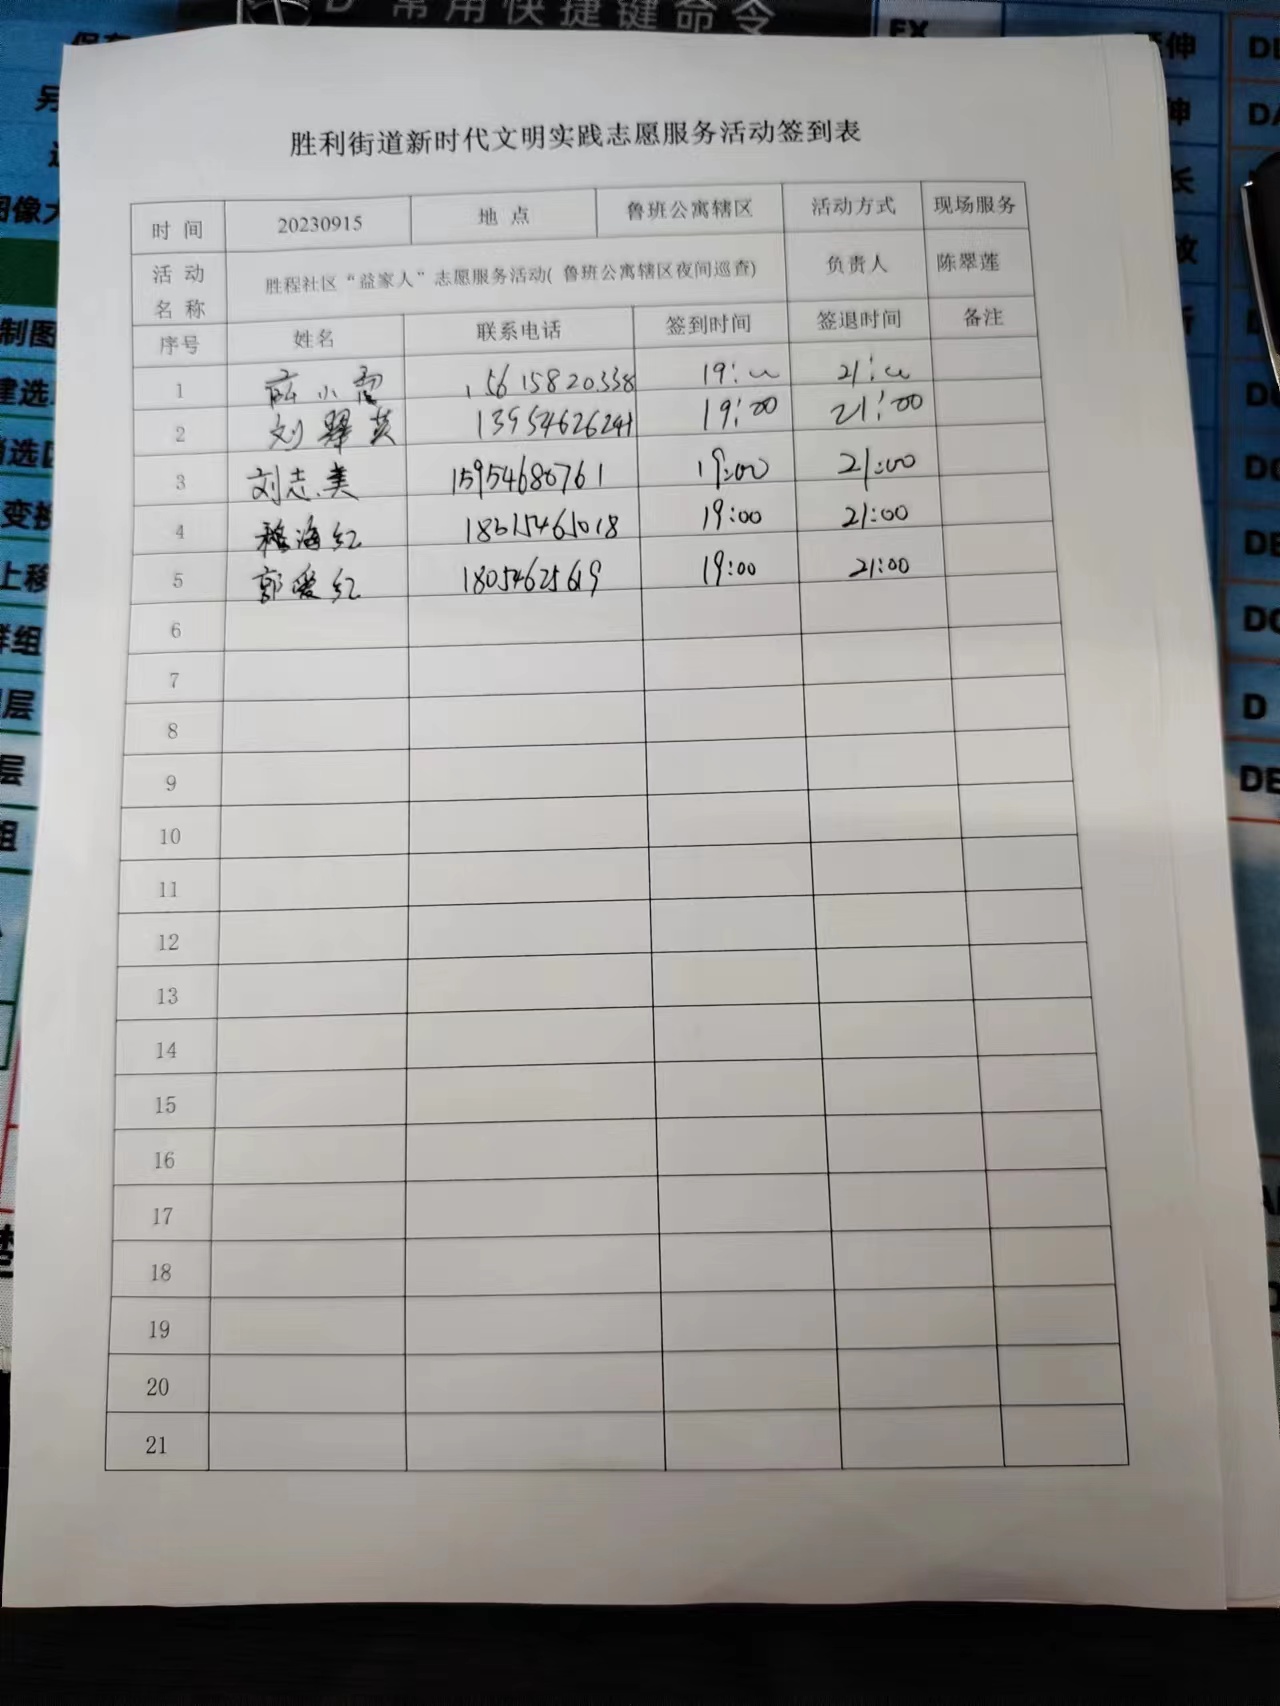 D 常用快捷键命令
EX
延伸
胜利街道新时代文明实践志愿服务活动签到表
时间 20230915 地点 鲁班公寓辖区 活动方式 现场服务
活动名称 胜程社区“益家人”志愿服务活动(鲁班公寓辖区夜间巡查) 负责人 陈翠莲
序号 姓名 联系电话 签到时间 签退时间 备注
1 小霞 15615820338 19:00 21:00
2 刘翠英 19:00 21:00
3 刘志美 15954680761 19:00 21:00
4 程海红 19:00 21:00
5 郭爱红 19:00 21:00
6
7
8
9
10
11
12
13
14
15
16
17
18
19
20
21